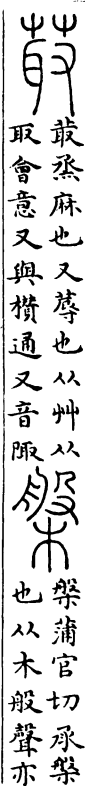 菆
菆蒸麻也又蓐也从艸从
取會意又與欑通又音陬
槃
槃蒲官切承槃
也从木般聲亦